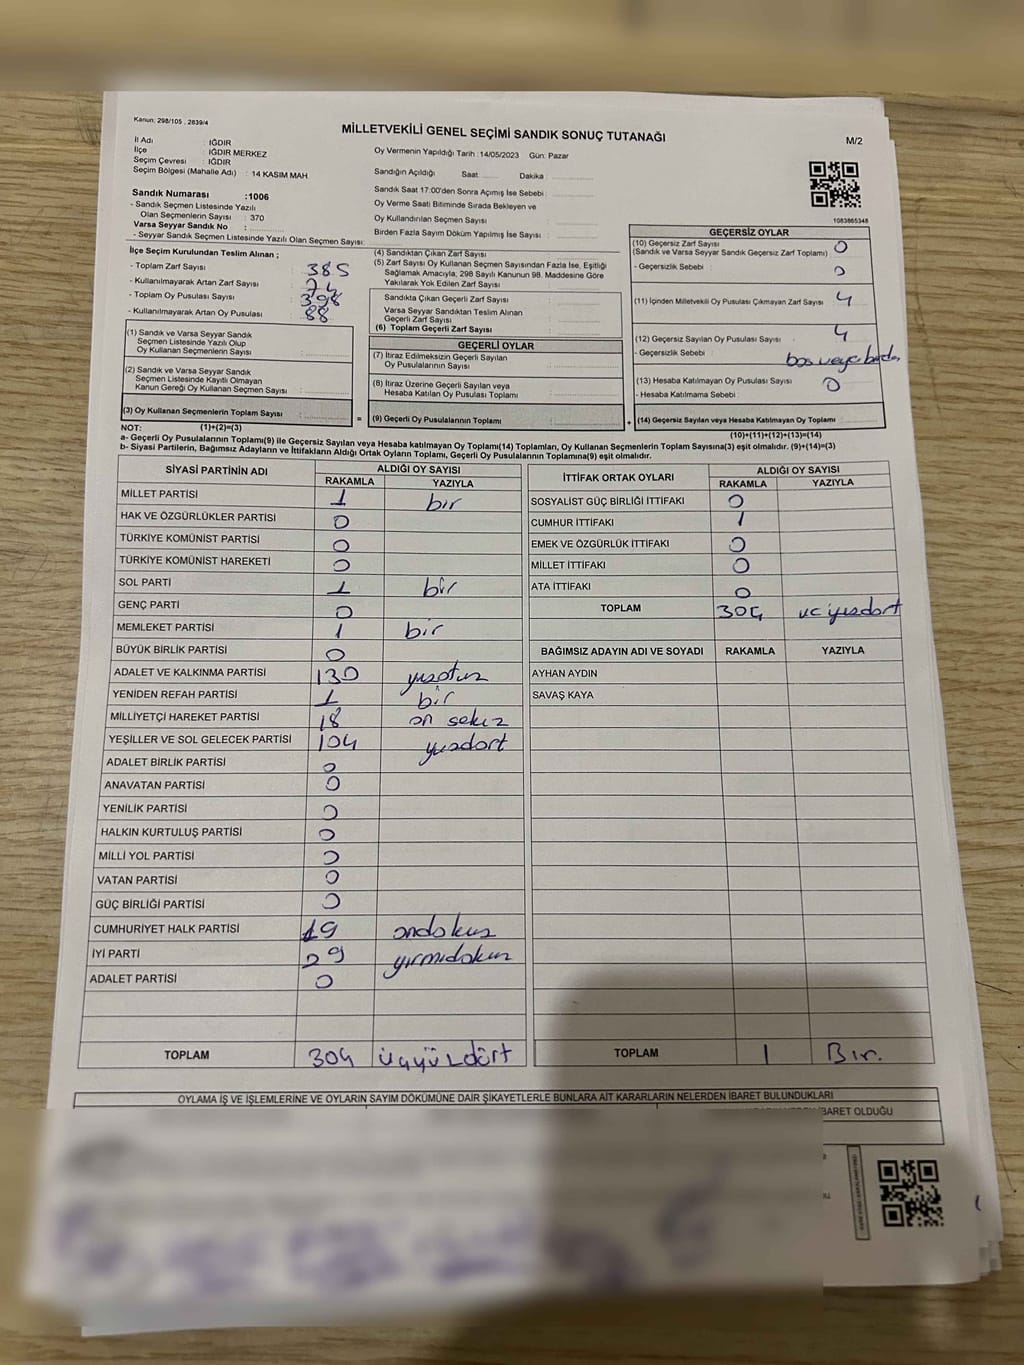 Kanun: 298/105 , 2839/4
MİLLETVEKİLİ GENEL SEÇİMİ SANDIK SONUÇ TUTANAĞI
M/2
İl Adı : IĞDIR
İlçe : IĞDIR MERKEZ
Seçim Çevresi : IĞDIR
Seçim Bölgesi (Mahalle Adı) : 14 KASIM MAH
Sandık Numarası :1006
- Sandık Seçmen Listesinde Yazılı
Olan Seçmenlerin Sayısı : 370
Varsa Seyyar Sandık No :
- Seyyar Sandık Seçmen Listesinde Yazılı Olan Seçmen Sayısı:
Oy Vermenin Yapıldığı Tarih :14/05/2023 Gün: Pazar
Sandığın Açıldığı Saat Dakika :
Sandık Saat 17:00'den Sonra Açımış İse Sebebi :
Oy Verme Saati Bitiminde Sırada Bekleyen ve
Oy Kullandırılan Seçmen Sayısı :
Birden Fazla Sayım Döküm Yapılmış İse Sayısı :
1083865348
İlçe Seçim Kurulundan Teslim Alınan ;
- Toplam Zarf Sayısı : 385
- Kullanılmayarak Artan Zarf Sayısı : 74
- Toplam Oy Pusulası Sayısı : 398
- Kullanılmayarak Artan Oy Pusulası : 88
(1) Sandık ve Varsa Seyyar Sandık
Seçmen Listesinde Yazılı Olup
Oy Kullanan Seçmenlerin Sayısı :
(2) Sandık ve Varsa Seyyar Sandık
Seçmen Listesinde Kayıtlı Olmayan
Kanun Gereği Oy Kullanan Seçmen Sayısı :
(3) Oy Kullanan Seçmenlerin Toplam Sayısı :
(4) Sandıktan Çıkan Zarf Sayısı :
(5) Zarf Sayısı Oy Kullanan Seçmen Sayısından Fazla İse, Eşitliği
Sağlamak Amacıyla; 298 Sayılı Kanunun 98. Maddesine Göre
Yakılarak Yok Edilen Zarf Sayısı :
Sandıkta Çıkan Geçerli Zarf Sayısı :
Varsa Seyyar Sandıktan Teslim Alınan
Geçerli Zarf Sayısı :
(6) Toplam Geçerli Zarf Sayısı :
GEÇERLİ OYLAR
(7) İtiraz Edilmeksizin Geçerli Sayılan
Oy Pusulalarının Sayısı :
(8) İtiraz Üzerine Geçerli Sayılan veya
Hesaba Katılan Oy Pusulası Toplamı :
= (9) Geçerli Oy Pusulalarının Toplamı :
GEÇERSİZ OYLAR
(10) Geçersiz Zarf Sayısı : 0
(Sandık ve Varsa Seyyar Sandık Geçersiz Zarf Toplamı)
- Geçersizlik Sebebi : 0
(11) İçinden Milletvekili Oy Pusulası Çıkmayan Zarf Sayısı : 4
(12) Geçersiz Sayılan Oy Pusulası Sayısı : 4
- Geçersizlik Sebebi
(13) Hesaba Katılmayan Oy Pusulası Sayısı : 0
- Hesaba Katılmama Sebebi :
+ (14) Geçersiz Sayılan veya Hesaba Katılmayan Oy Toplamı :
NOT: (1)+(2)=(3)
(10)+(11)+(12)+(13)=(14)
a- Geçerli Oy Pusulalarının Toplamı(9) ile Geçersiz Sayılan veya Hesaba katılmayan Oy Toplamı(14) Toplamları, Oy Kullanan Seçmenlerin Toplam Sayısına(3) eşit olmalıdır. (9)+(14)=(3)
b- Siyasi Partilerin, Bağımsız Adayların ve İttifakların Aldığı Ortak Oyların Toplamı, Geçerli Oy Pusulalarının Toplamına(9) eşit olmalıdır.
SİYASİ PARTİNİN ADI ALDIĞI OY SAYISI
RAKAMLA YAZIYLA
MİLLET PARTİSİ 1 bir
HAK VE ÖZGÜRLÜKLER PARTİSİ 0
TÜRKİYE KOMÜNİST PARTİSİ 0
TÜRKİYE KOMÜNİST HAREKETİ 0
SOL PARTİ 1 bir
GENÇ PARTİ 0
MEMLEKET PARTİSİ 1 bir
BÜYÜK BİRLİK PARTİSİ 0
ADALET VE KALKINMA PARTİSİ 130 yuzotuz
YENİDEN REFAH PARTİSİ 1 bir
MİLLİYETÇİ HAREKET PARTİSİ 18 on sekiz
YEŞİLLER VE SOL GELECEK PARTİSİ 104 yuzdort
ADALET BİRLİK PARTİSİ 0
ANAVATAN PARTİSİ 0
YENİLİK PARTİSİ 0
HALKIN KURTULUŞ PARTİSİ 0
MİLLİ YOL PARTİSİ 0
VATAN PARTİSİ 0
GÜÇ BİRLİĞİ PARTİSİ 0
CUMHURİYET HALK PARTİSİ 19 ondokuz
İYİ PARTİ 29 yırmıdokuz
ADALET PARTİSİ 0
TOPLAM 304 üçyüzdört
İTTİFAK ORTAK OYLARI ALDIĞI OY SAYISI
RAKAMLA YAZIYLA
SOSYALİST GÜÇ BİRLİĞİ İTTİFAKI 0
CUMHUR İTTİFAKI 1
EMEK VE ÖZGÜRLÜK İTTİFAKI 0
MİLLET İTTİFAKI 0
ATA İTTİFAKI 0
TOPLAM 304 uc yuzdort
BAĞIMSIZ ADAYIN ADI VE SOYADI RAKAMLA YAZIYLA
AYHAN AYDIN
SAVAŞ KAYA
TOPLAM 1 Bır.
OYLAMA İŞ VE İŞLEMLERİNE VE OYLARIN SAYIM DÖKÜMÜNE DAİR ŞİKAYETLERLE BUNLARA AİT KARARLARIN NELERDEN İBARET BULUNDUKLARI
BARET OLDUĞU